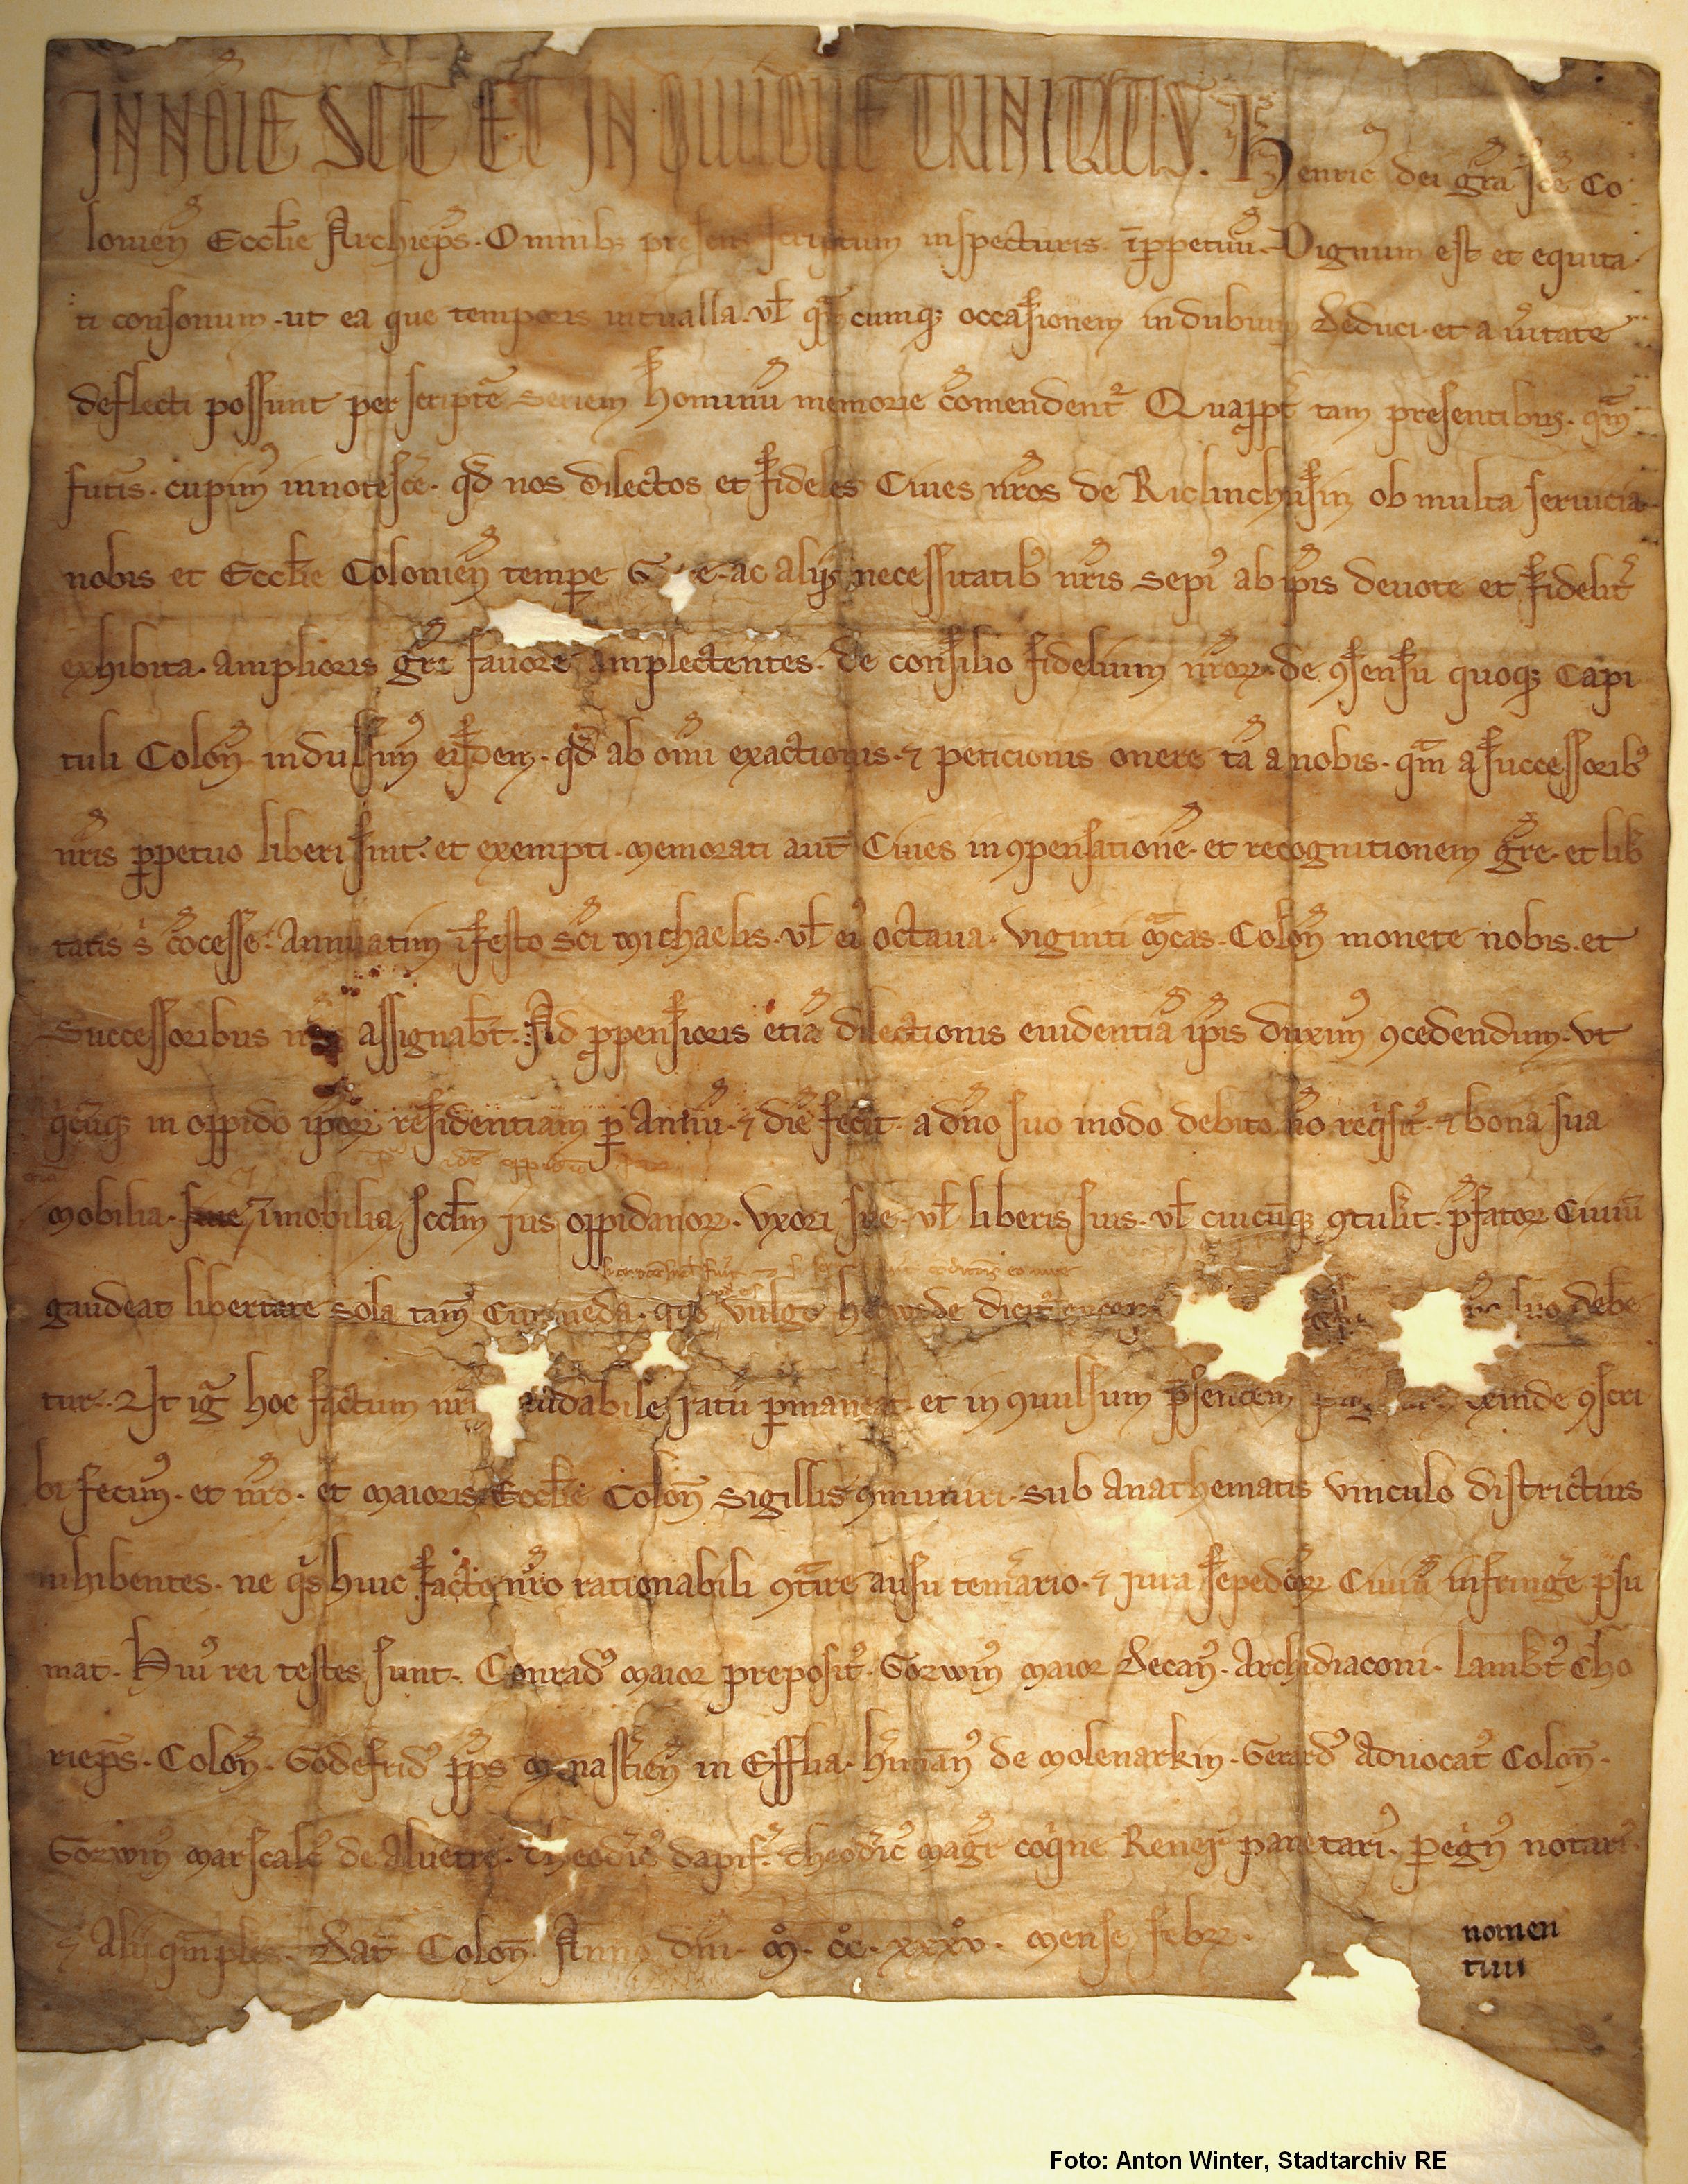 IN NOIE SCE ET INDIVIDUE TRINITATIS. Henric' dei gra sce Co
lonien Eccl'ie Archiep̄s. Omnib; presens scriptum inspecturis. īp̱petuū. Dignum est et equita
ti consonum. ut ea que temporis intualla. vł qācumq; occasionem in dubium deduci. et a vitate
deflecti possunt per scripte seriem hominū memorie cōmendent᷑ Quapp̱t tam presentibus. qm̄
futis. cupim' innotesce. qd nos dilectos et fideles Ciues nr̄os de Riclinchusin ob multa seruicia
nobis et Eccl'ie Colonien temp̱e ac aliis necessitatib' nr̄is sepi' ab ip̄is deuote et fidelit'
exhibita. amplioris gre fauore amplectentes. de consilio fidelium nr̄oꝝ. de ꝯsensu quoq; Capi
tuli Colon indulsim' eisdem. qd ab omī exactionis. ⁊ peticionis onere tā a nobis. qm̄ a successorib'
nr̄is p̱petuo liberi sint. et exempti. memorati aut̄ Ciues in ꝯpensatione. et recognitionem gre. et lib̄
tatis s' cōcesse. Annuatim ī festo Sci michaelis. vł ei' octaua. viginti mcas. Colon monete nobis. et
Successoribus assignab̄t. Ad p̱pensioris etiā dilectionis euidentiā ip̄is duxim' ꝯcedendum. vt
qcūq; in oppido ip̄oꝝ residentiam p̱ Annū. ⁊ diē fecit. a dn̄o suo modo debito nō reqsit'. ⁊ bona sua
mobilia. siue īmobilia, scdm jus oppidanoꝝ. vxori sue. vł liberis suis. vł cuicūq; ꝯtulit. p̄fatoꝝ Ciuiū
gaudeat libertate sola tam̄ Curmeda. que vulgo dicit᷑ suo debe
tur. Ut ig̃ hoc factum nr̄i audabile ratū p̱maneat et in ꝯuulsum p̄sentem exinde ꝯscri
bi fecim'. et nr̄o. et maioris Eccl'ie Colon̄ sigillis ꝯmuniri. sub anathematis vinculo districtius
inhibentes. ne qs huic facto nr̄o rationabili ꝯtāire ausu temario. ⁊ jura sepedcoꝝ Ciuiū infringe p̄su
mat. Hui' rei testes sunt. Conrad' maior preposit'. Gozwin' maior decan'. Archidiaconi. lamb̄t' Cho
riep̄s. Colon. Godefrid' pp̄s monastien in Efflia. hman' de molenarkin. Gerard' aduocat' Colon̄.
Gozwin' marscalc' de aluetre. Theodic' dapif'. theodic' magr coqine Rener' panetari'. p̱egn' notari'.
⁊ alii qmples. Dat Colon̄. Anno dn̄i. m̊. cc̊. xxxv̊. mense febꝝ.
nomen
tuu
Foto: Anton Winter, Stadtarchiv RE